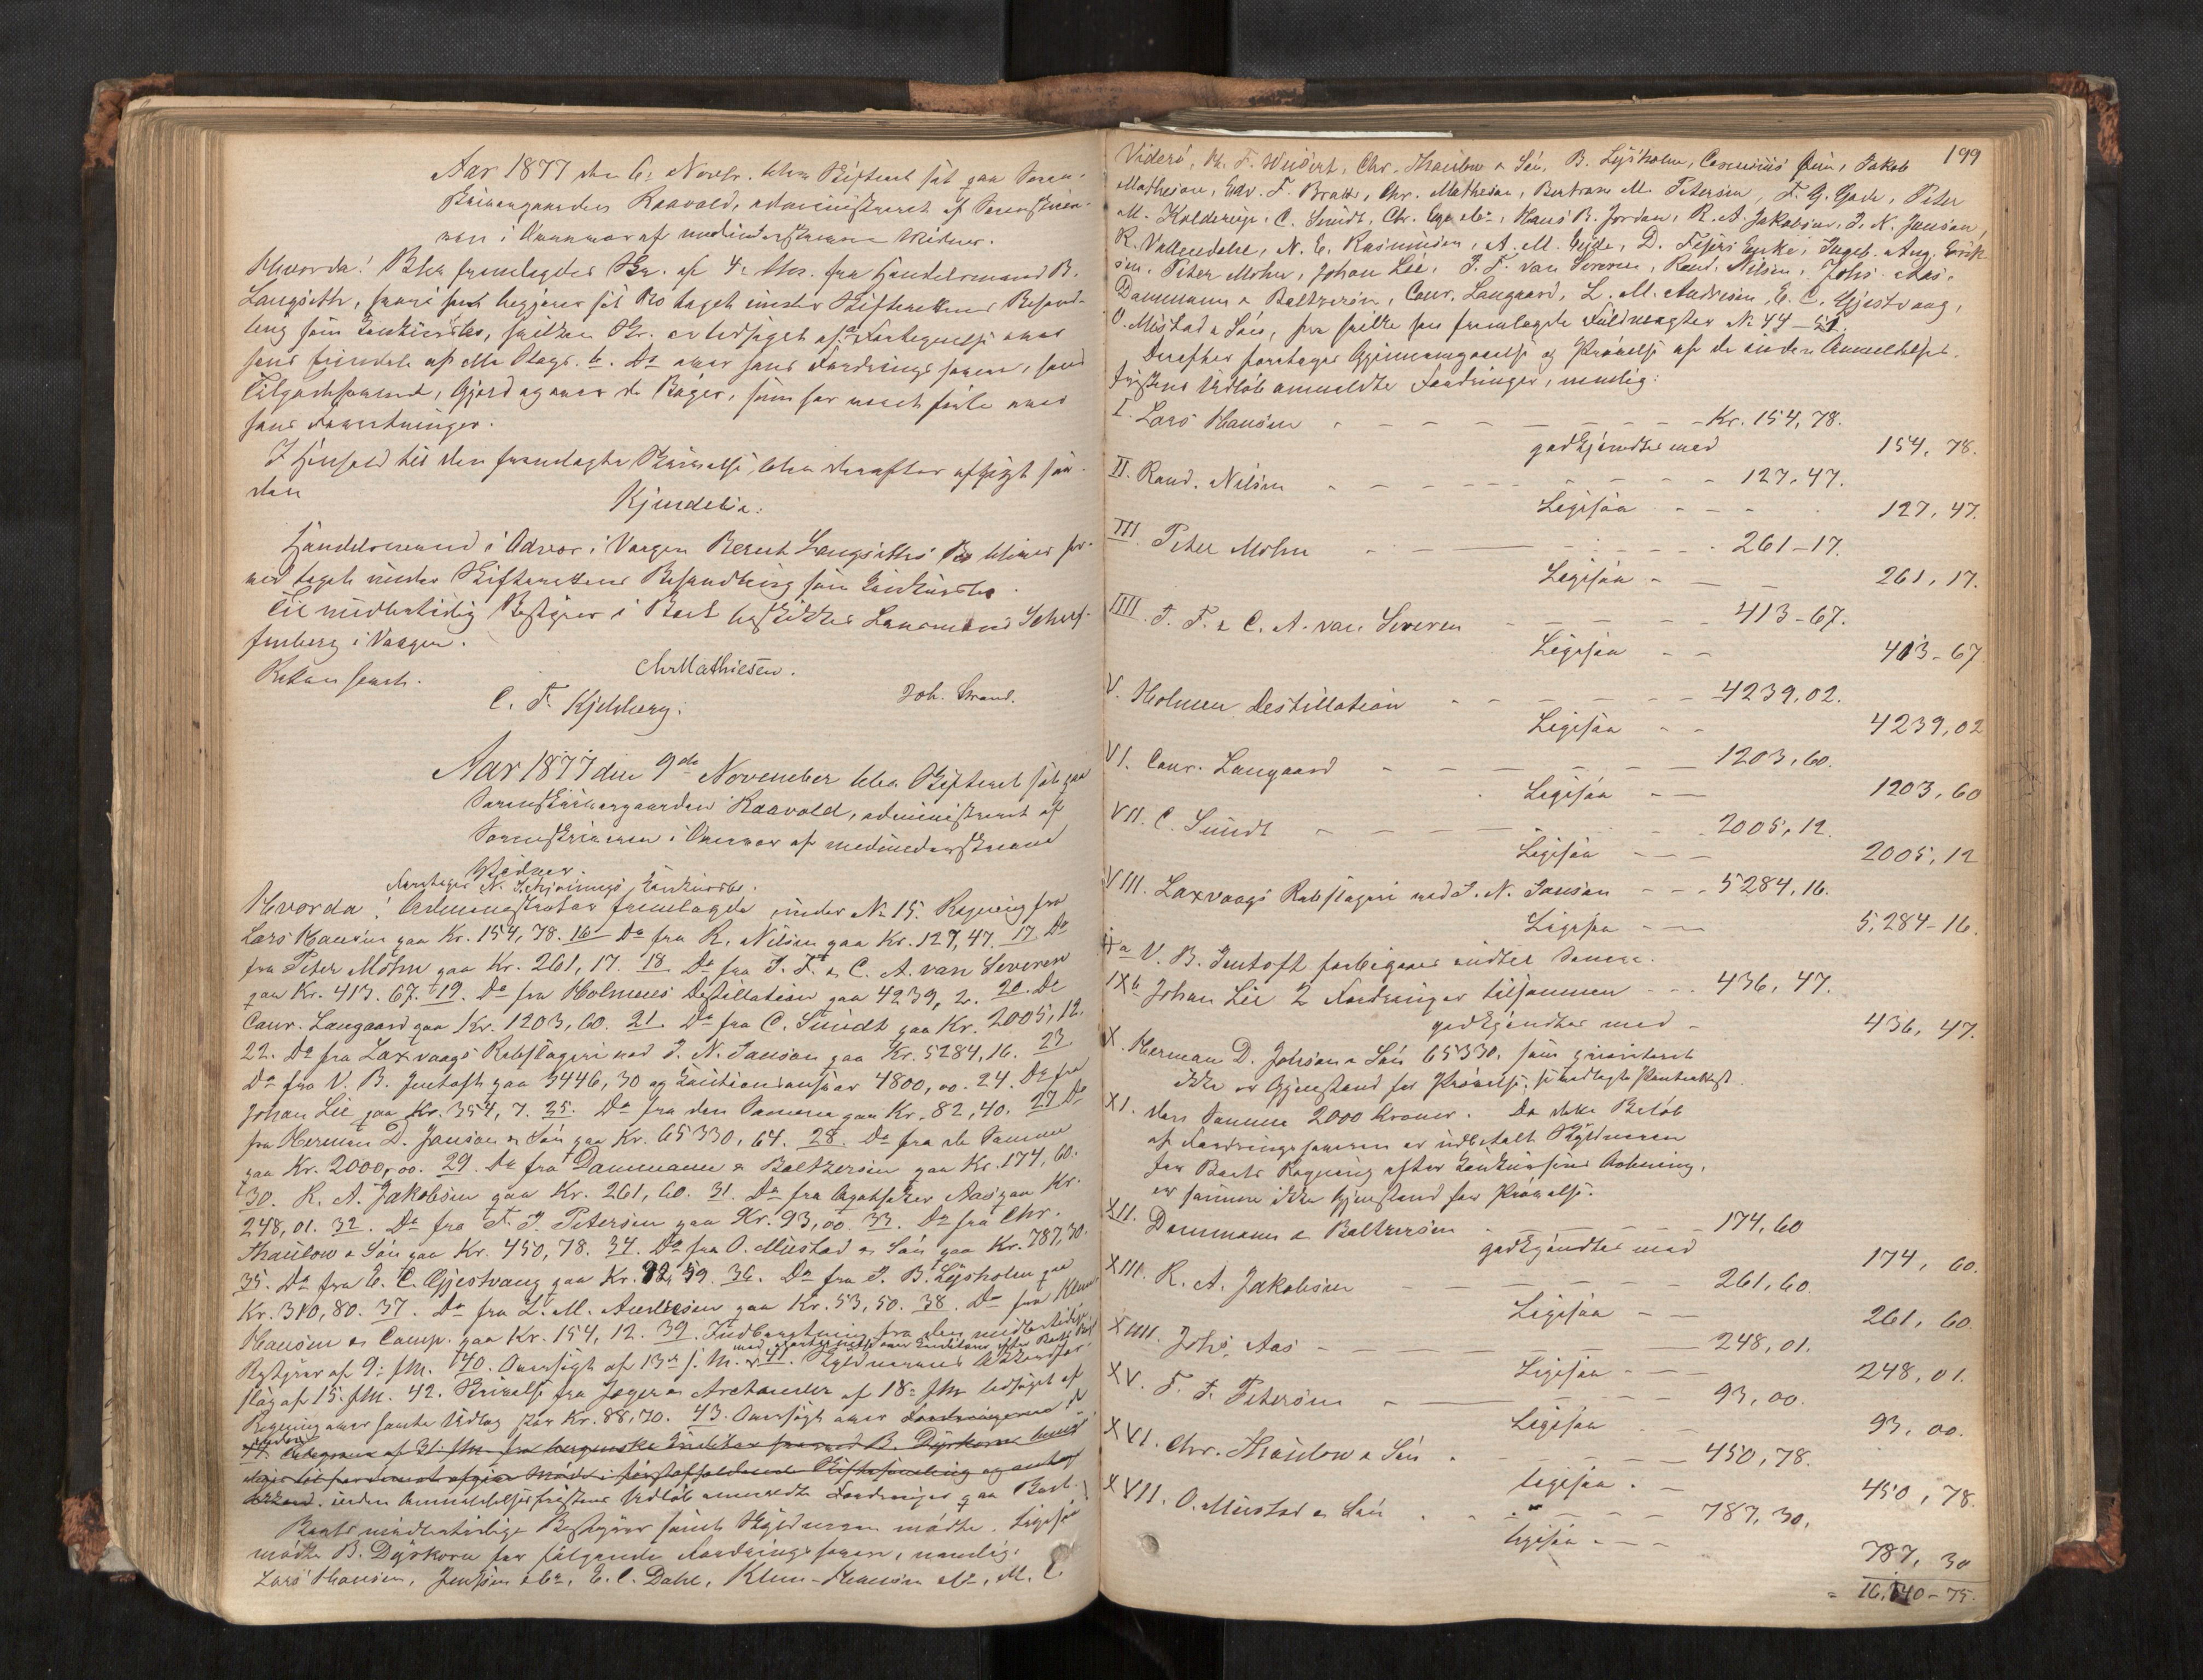 Aar 1877 den 6. Novbr. blev Skifteret sat paa Soren-
skrivergaarden Raavold, administreret af Sorenskrive-
ren i Overvær af medunderskrevne Vidner.
Hvorda! Blev fremlagdes Skr. af 4de ds. fra Handelsmand B.
Langsæth, hvori han begjærer sit Bo taget under Skifterettens Behand-
ling som Konkursbo, hvilken Skr. er ledsaget af a Fortegnelse over
hans Eiendele af alle Slags. b. Do over hans Fordringshavere, hans
Tilgodehavende, Gjæld og over de Bøger, som har været ført over
hans Forretninger.
I Henhold til den fremlagte Skrivelse, blev derefter afsagt saa-
dan
Kjendelse:
Handelsmand i Vaagen Bernt Langsæths Bo bliver her-
ved taget under Skifterettens Behandling som Konkursbo.
Til midlertidig Bestyrer i Boet beskikkes Lensmand
i Vaagen.
Retten hævet.
Chr Mathiesen.
C. F. Kjelsberg.
Joh. Strand.
Aar 1877 den 9de November blev Skifteret sat paa
Sorenskrivergaarden Raavold, administreret af
Sorenskriveren i Overvær af medunderskrevne
Vidner.
Foretages N. Konkursbo.
Hvorda! Administrator fremlagde under No 15. Regning fra
Lars Hansen paa Kr. 154,78. 16 Do fra R. Nilsen paa Kr. 127,47. 17 Do
fra Peter Mohn paa Kr. 261,17. 18 Do fra J. F. & C. A. van Severen
paa Kr. 413.67. 19. Do fra Holmens Destillation paa 4239,2. 20. Do
Conr. Langaard paa Kr. 1203,60. 21 Do fra C. Sundt paa Kr. 2005,12.
22. Do fra Laxevaags Rebslageri ved J. N. Janson paa Kr. 5284,16. 23
Do fra V. B. Justoft paa 3446,30 og Kautionsansvar 4800,00. 24. Do fra
Johan Lie paa Kr. 354,7. 25. Do fra den Samme paa Kr. 82,40. 27 Do
fra Herman D. Janson & Søn paa Kr. 65330,64. 28. Do fra de Samme
paa Kr. 2000,00. 29. Do fra Dammann & Baltzersen paa Kr. 174,60.
30. R. A. Jakobsen paa Kr. 261,60. 31. Do fra Apotheker Aas paa Kr.
248,01. 32. Do fra F. J. Petersen paa Kr. 93,00. 33. Do fra Chr.
Thaulow & Søn paa Kr. 450,78. 34. Do fra O. Mustad & Søn paa Kr. 787,30.
35. Do fra E. C. Gjestvang paa Kr. 36. Do fra J. B. Lysholm paa
Kr. 310,80. 37. Do fra L. M. Andresen paa Kr. 53,50. 38. Do fra Klem
Hansen & Comp. paa Kr. 154,12. 39. Indberetning fra den midlertidige
Bestyrer af 9. f.M. 40. Oversigt af 13de f.M. 41. Skyldnerens Akkordfor-
slag af 15. f.M. 42. Skrivelse fra Jæger & Archander af 18. f.M. ledsaget af
Regning over havte Udlæg stor Kr. 88,70. 43. Oversigt over
inden Anmeldelsesfristens Udløb anmeldte Fordringer paa Boet.
Boets midlertidige Bestyrer samt Skyldneren mødte. Ligesaa
mødte B. Dyrkorn for følgende Fordringshavere, nemlig:
Lars Hansen, Jensen & Co, E. C. Dahl, Klem-Hansen & Co, M. E.
199
Viderø, H. F. Weidert, Chr. Thaulow & Søn, B. Lysholm, Jakob
Mathesen, Edv. F. Bratt, Chr. Mathesen, Bertram M. Petersen, F. G. Gade, Peter
M. Kolderup, C. Sundt, Hans B. Jordan, R. A. Jakobsen, J. N. Janson,
R. Vallendahl, N. E. Rasmussen, A. M. Gyde, D. Enke, Ingeb. Aug. Erik-
sen, Peter Mohn, Johan Lie, J. F. van Severen, Rand. Nilsen, Johs. Aas,
Dammann & Baltzersen, Conr. Langaard, L. M. Andresen, E. C. Gjestvang,
O. Mustad & Søn, fra hvilke han fremlagde Fuldmagter No 44-51.
Derefter foretoges Gjennemgaaelse og Prøvelse af de inden Anmeldelses-
fristens Udløb anmeldte Fordringer, nemlig:
I. Lars Hansen - - - Kr. 154,78.
godkjendtes med 154,78.
II. Rand. Nilsen - - - 127,47.
Ligesaa - - - 127,47.
III. Peter Mohn - - - 261-17.
Ligesaa - - - 261,17.
IIII. J. F. & C. A. van Severen - - - 413-67.
Ligesaa - - 413-67
V. Holmen Destillation - - - 4239,02.
Ligesaa - - 4239,02
VI. Conr. Langaard - - - 1203,60.
Ligesaa - - 1203,60
VII. C. Sundt - - - 2005,12.
Ligesaa - - - 2005,12
VIII. Laxevaags Rebslageri ved J. N. Janson - - - 5284,16.
Ligesaa - - 5,284-16.
IXa V. B. Justoft forbigaaes indtil Senere.
IXb Johan Lie 2 Fordringer tilsammen - - - 436,47.
godkjendtes med - 436,47.
X. Herman D. Johnson & Søn 65330, som prioriteret
ikke er Gjenstand for Prøvelse,
XI. den Samme 2000 Kroner. Da dette Beløb
af Fordringshaveren er udbetalt Skyldneren
for Boets Regning efter Konkursens Aabning,
er samme ikke Gjenstand for Prøvelse.
XII. Dammann & Baltzersen - - - 174,60
godkjendtes med 174,60.
XIII. R. A. Jakobsen - - - 261,60.
Ligesaa - - 261,60.
XIIII. Johs. Aas - - - 248,01.
Ligesaa - - 248,01.
XV. F. J. Petersen - - - 93,00.
Ligesaa - 93,00.
XVI. Chr. Thaulow & Søn - - - 450,78.
ligesaa - 450,78.
XVII. O. Mustad & Søn - - - 787,30.
ligesaa - - - 787,30